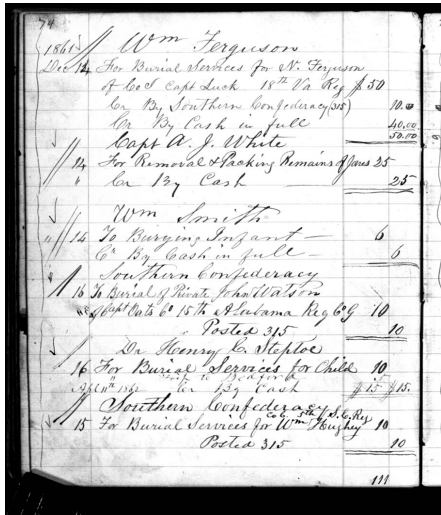 74
1861 Wm Ferguson
Dec 14 For Burial Services for N. Ferguson
of Co I Capt Luck 18th Va Reg $50
Cr By Southern Confederacy (315) 10.00
Cr By Cash in full 40.00
50.00
Capt A. J. White
" 14 For Removal & Packing Remains of 25
" Cr By Cash 25
Wm Smith
" 14 To Burying Infant 6
Cr By Cash in full 6
Southern Confederacy
" 16 To Burial of Private John Watson
Capt 15th Alabama Reg Co G 10
Posted 315 10
Dr Henry C. Steptoe
16 For Burial Services for Child 10
Cr By Cash $15 $15.
Southern Confederacy
Col. 5th S. C. Reg
" 15 For Burial Services for Wm Hughey 10
Posted 315 10
111